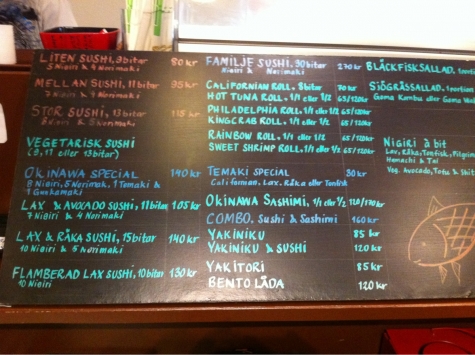 LITEN SUSHI, 9 bitar 80 kr
5 Nigiri & 4 Norimaki
MELLAN SUSHI, 11 bitar 95 kr
7 Nigiri & 4 Norimaki
STOR SUSHI, 13 bitar 115 kr
VEGETARISK SUSHI
(9, 11 eller 13 bitar)
OKINAWA SPECIAL 140 kr
8 Nigiri, 5 Norimak, 1 Temaki &
1 Gunkamaki
LAX & AVOCADO SUSHI, 11 bitar 105 kr
7 Nigiri & 4 Norimaki
LAX & RÄKA SUSHI, 15 bitar 140 kr
10 Nigiri & 5 Norimaki
FLAMBERAD LAX SUSHI, 10 bitar 130 kr
10 Nigiri
FAMILJE SUSHI, 30 bitar 270 kr
Nigiri & Norimaki
CALIFORNIAN ROLL, 8 bitar 70 kr
HOT TUNA ROLL, 1/1 eller 1/2 65/120 kr
PHILADELPHIA ROLL, 1/1 eller 1/2 65/120 kr
KINGCRAB ROLL, 1/1 eller 1/2 65/120 kr
RAINBOW ROLL, 1/1 eller 1/2 65/120 kr
SWEET SHRIMP ROLL, 1/1 eller 1/2 65/120 kr
TEMAKI SPECIAL 30 kr
Californian, Lax, Räka eller Tonfisk
OKINAWA SASHIMI, 1/1 eller 1/2 120/170 kr
COMBO, Sushi & Sashimi 160 kr
YAKINIKU 85 kr
YAKINIKU & SUSHI 120 kr
YAKITORI 85 kr
BENTO LÅDA 120 kr
BLÄCKFISKSALLAD, 1 portion
SJÖGRÄSSALLAD, 1 portion
Goma Kombu eller Goma Wa
NIGIRI à bit
Lax, Räka, Tonfisk, Pilgrim
Hamachi & Tai
Veg. Avocado, Tofu & Shit